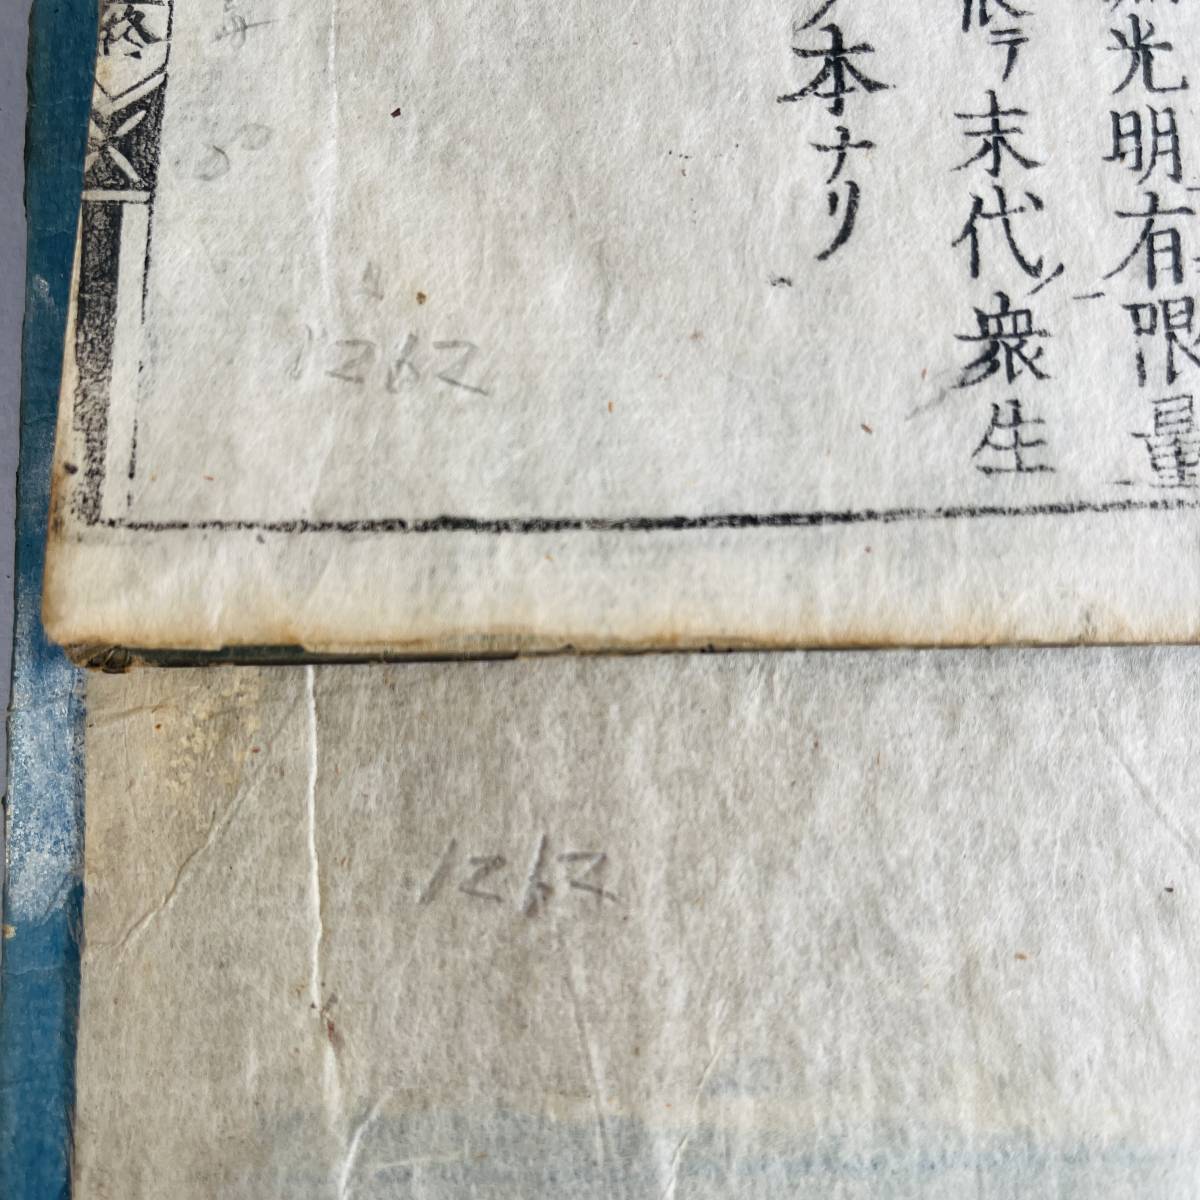 光明有限量
テ末代衆生
ノ本ナリ
終
1262
1262